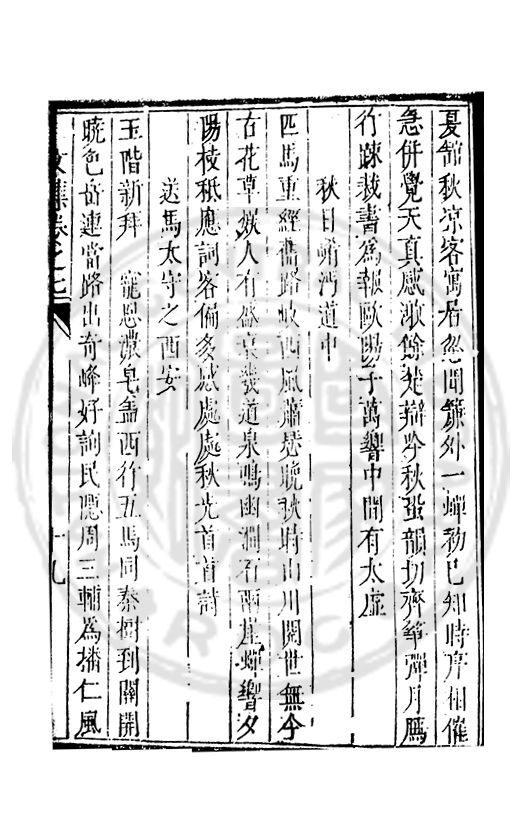 夏秋凉客寓居忽聞簾外一蟬初已知時序相催
急併覺天真感激餘楚辯吟秋蛩韻切齊箏彈月鴈
行踈裁書爲報歐陽子萬響中間有太虛
秋日崤沔道中
匹馬重經舊路岐西風蕭瑟晚秋時山川閱世無今
古花草人有盛衰幾道泉鳴幽澗石兩崖蟬響夕
陽枝秪應詞客偏多感處處秋光首首詩
送馬太守之西安
玉階新拜 寵恩濃皂盖西行五馬同秦樹到關開
曉色岳蓮當路出奇峰好詢民隱周三輔爲播仁風
文集卷之七 十九